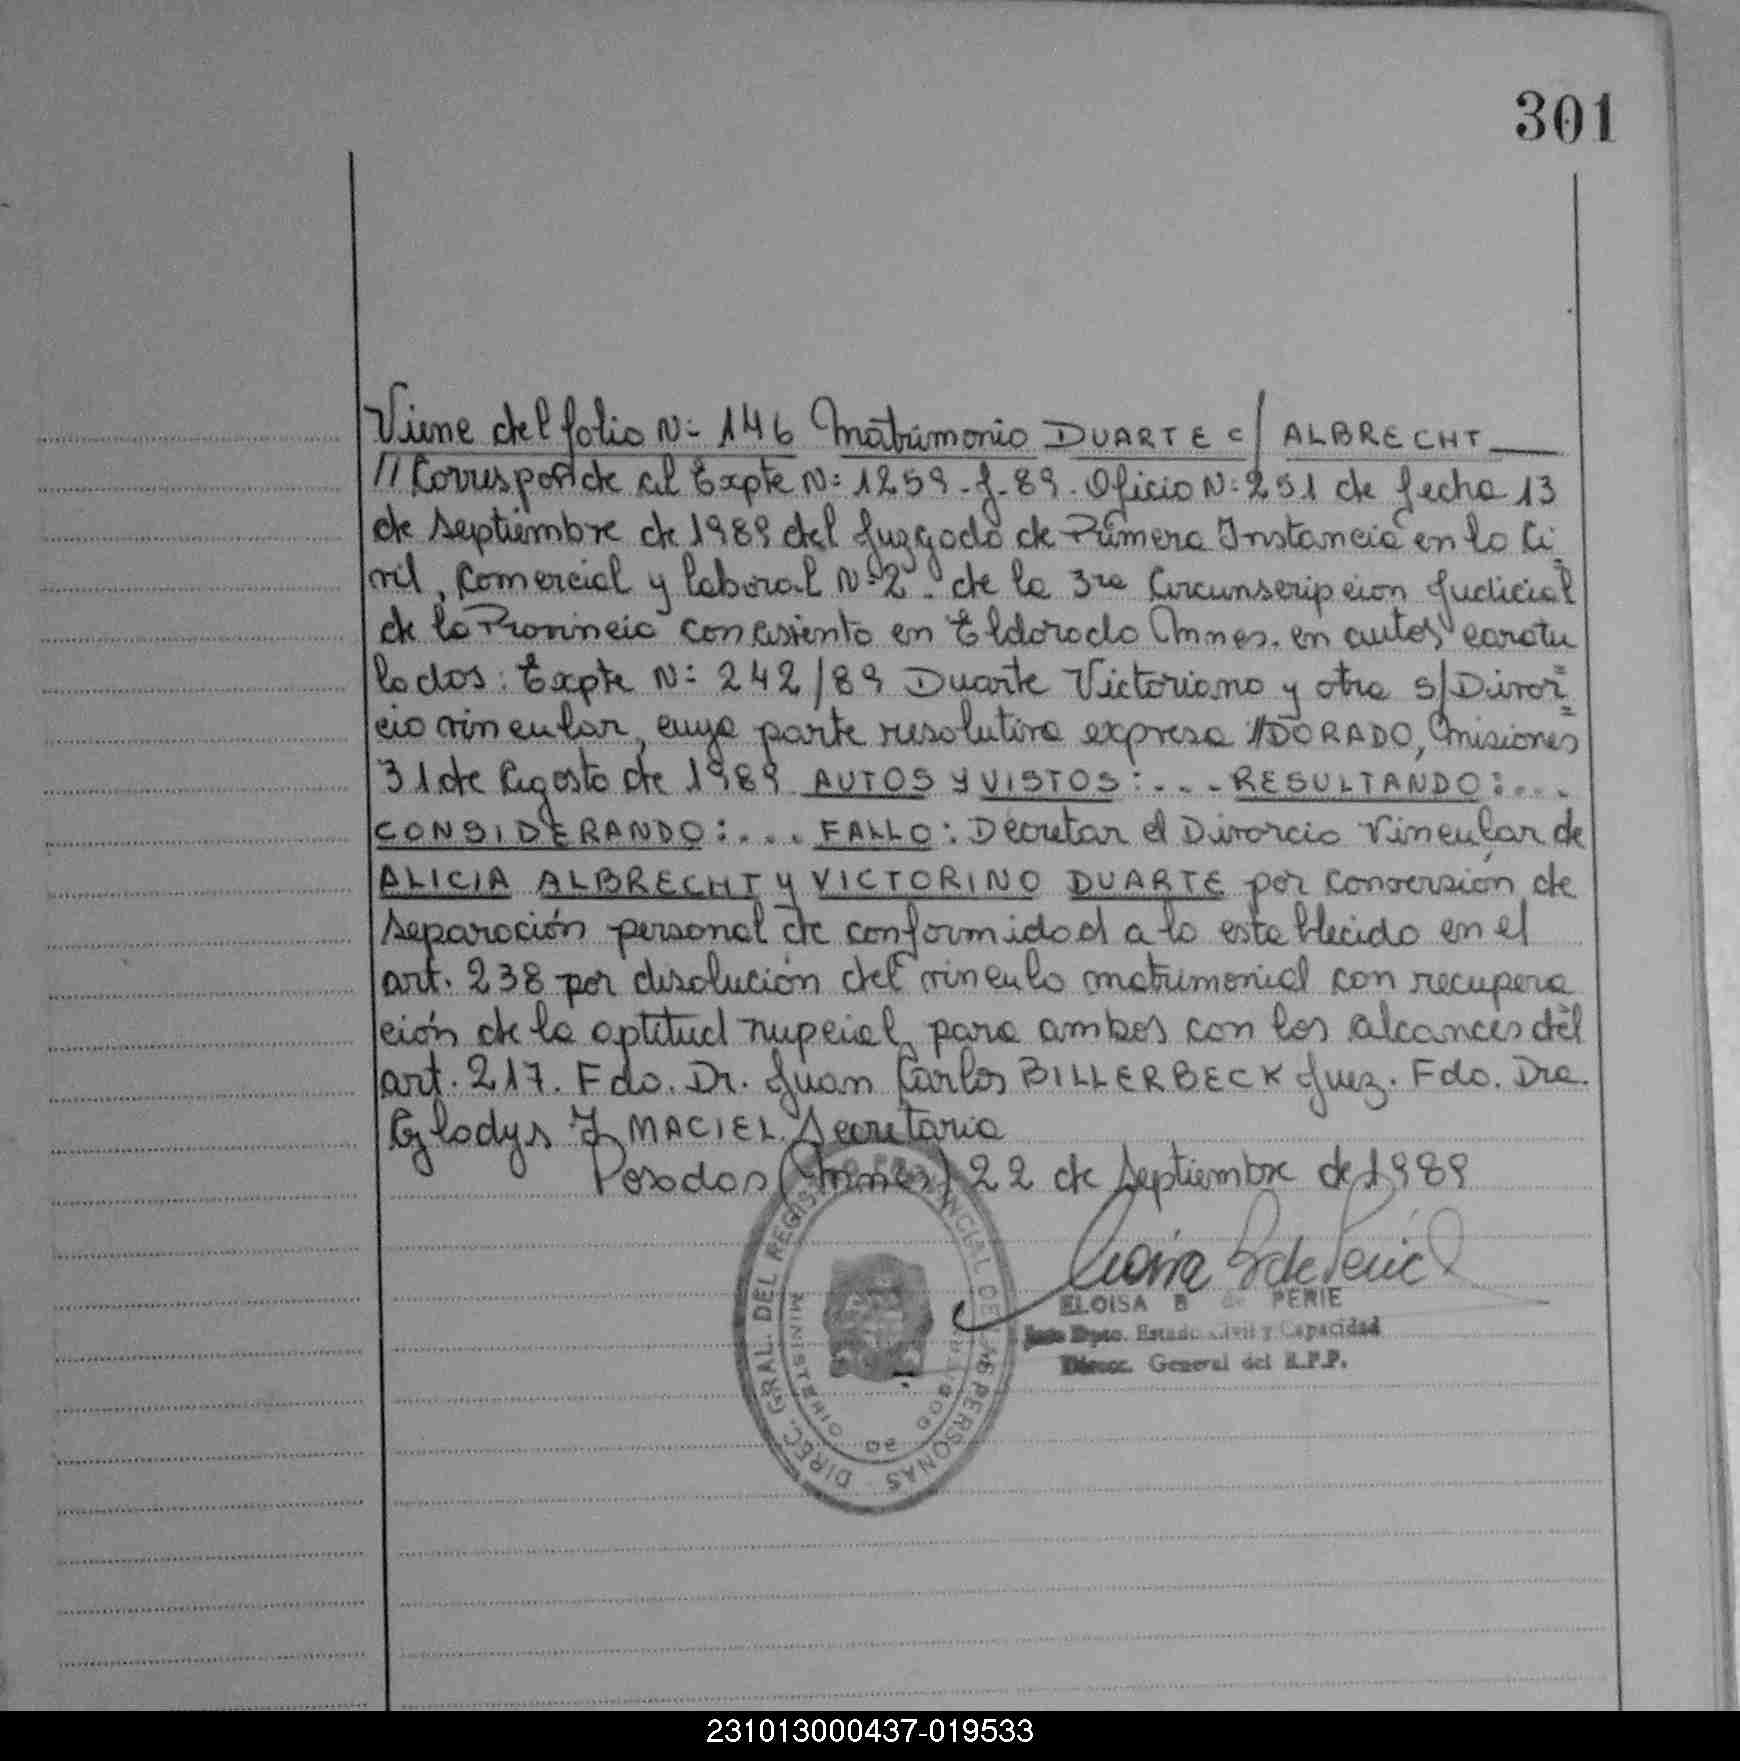 301
Viene del folio Nº 146 Matrimonio DUARTE c/ ALBRECHT
// Corresponde al Expte Nº 1259-J-89. Oficio Nº 251 de fecha 13
de septiembre de 1989 del Juzgado de Primera Instancia en lo Ci
vil, Comercial y laboral Nº 2. de la 3ra Circunscripcion Judicial
de la Provincia con asiento en Eldorado Mnes. en autos caratu
lados: Expte Nº 242/89 Duarte Victoriano y otra s/Divor=
cio vincular, cuya parte resolutiva expresa //DORADO, Misiones
31 de Agosto de 1989 AUTOS Y VISTOS:... RESULTANDO:...
CONSIDERANDO:... FALLO: Decretar el Divorcio Vincular de
ALICIA ALBRECHT y VICTORINO DUARTE por conversión de
separación personal de conformidad a lo establecido en el
art. 238 por disolución del vinculo matrimonial con recupera
ción de la aptitud nupcial para ambos con los alcances del
art. 217. Fdo. Dr. Juan Carlos BILLERBECK Juez. Fdo. Dra.
Gladys MACIEL. Secretaria
Posadas (Mnes) 22 de septiembre de 1989
ELOISA B de PERIE
Dpto. Estado Civil y Capacidad
Direcc. General del R.P.P.
DIREC. GRAL. DEL REGISTRO PROVINCIAL DE LAS PERSONAS
MINISTERIO DE GOBIERNO
231013000437-019533